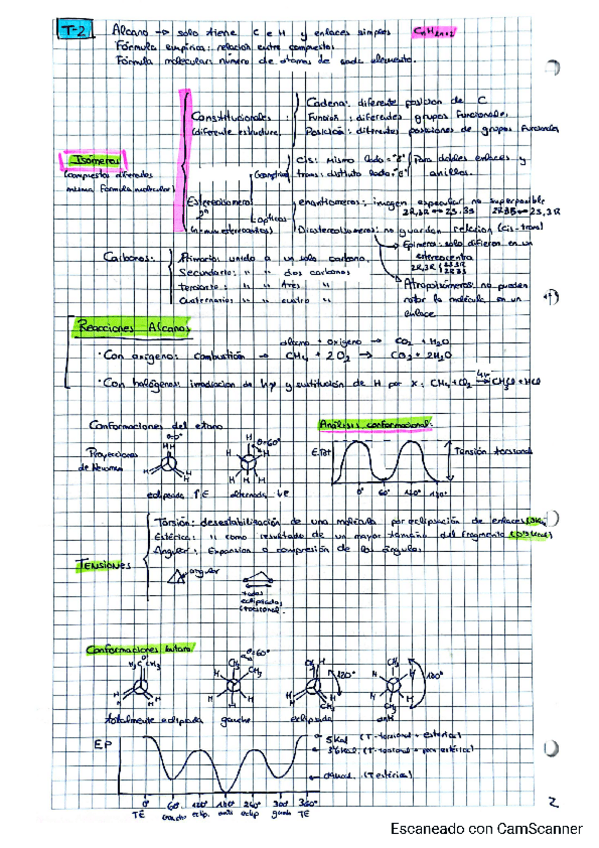 T-2 Alcano → solo tiene C e H y enlaces simples CnH2n+2
Fórmula empírica: relación entre compuestos.
Fórmula molecular: número de átomos de cada elemento.
Isómeros
(compuestos diferentes
misma fórmula molecular)
Constitucionales:
(diferente estructura)
Cadena: diferente posición de C
Función: diferentes grupos funcionales.
Posición: diferentes posiciones de grupos funcionales
Estereoisómeros
2ⁿ
Geométricos
cis: mismo lado = "Z"
trans: distinto lado = "E"
Para dobles enlaces y
anillos.
Ópticos
enantiómeros: imagen especular no superponible
2R,3R ↔ 2S,3S 2R3S ↔ 2S,3R
Diastereoisómeros: no guardan relación (cis-trans)
Epímeros: solo difieren en un
estereocentro
2R,3R
2S3R
2R3S
Atropoisómeros: no pueden
rotar la molécula en un
enlace
Carbonos:
Primarios: unido a un solo carbono.
Secundario: " " dos carbonos
Terciario: " " tres "
Cuaternarios " " cuatro "
Reacciones Alcanos
alcano + oxígeno → CO2 + H2O
· Con oxígeno: combustión → CH4 + 2O2 → CO2 + 2H2O
· Con halógenos: irradiación de hν y sustitución de H por X: CH4 + Cl2 → CH3Cl + HCl
Conformaciones del etano
Análisis conformacional:
Proyecciones
de Newman
θ=0°
HH
H
θ=60°
eclipsada ↑E alternada ↓E
E.Pot
Tensión torsional
0° 60° 120° 180°
TENSIONES
Torsión: desestabilización de una molécula por eclipsación de enlaces
Estérica: " como resultado de un mayor tamaño del fragmento
Angular: Expansión o compresión de los ángulos.
angular
todos
eclipsados
torsional
Conformaciones butano
H3C CH3
θ=60°
CH3
CH3
120°
CH3
CH3
180°
CH3
totalmente eclipsada gauche eclipsada anti
EP
5Kcal (T. torsional + estérica)
(T. torsional + estérica)
(T estérica)
0° 60° 120° 180° 240° 300° 360°
TE gauche eclip. anti eclip gauche TE
2
Escaneado con CamScanner